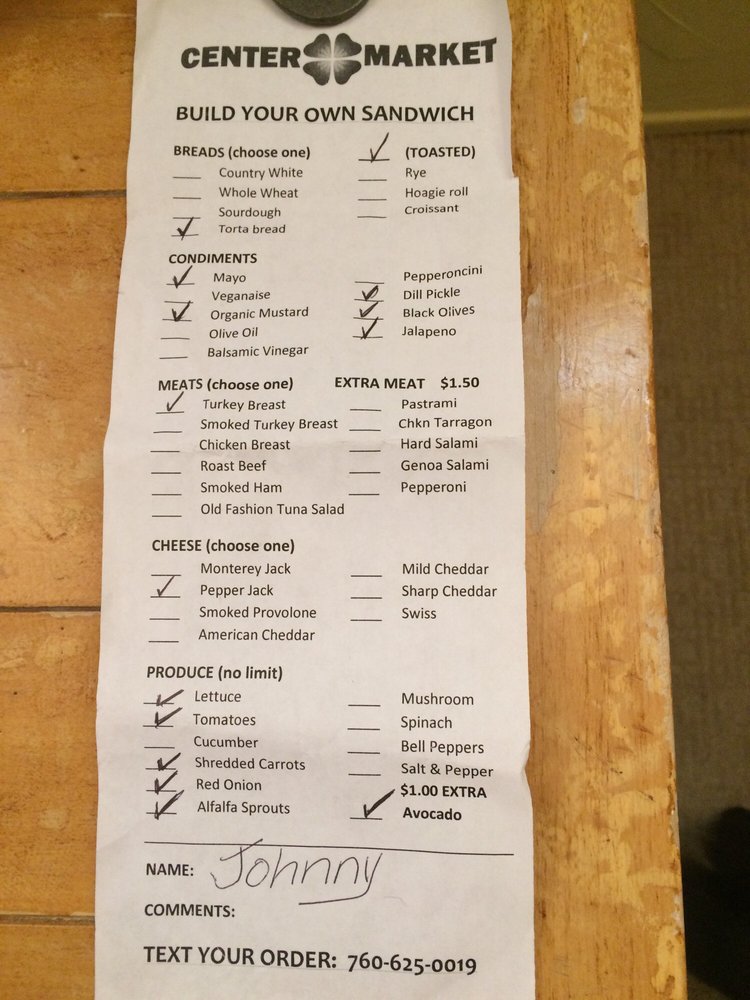 CENTER MARKET
BUILD YOUR OWN SANDWICH
BREADS (choose one) ✓ (TOASTED)
___ Country White ___ Rye
___ Whole Wheat ___ Hoagie roll
___ Sourdough ___ Croissant
✓ Torta bread
CONDIMENTS
✓ Mayo ___ Pepperoncini
___ Veganaise ✓ Dill Pickle
✓ Organic Mustard ✓ Black Olives
___ Olive Oil ✓ Jalapeno
___ Balsamic Vinegar
MEATS (choose one) EXTRA MEAT $1.50
✓ Turkey Breast ___ Pastrami
___ Smoked Turkey Breast ___ Chkn Tarragon
___ Chicken Breast ___ Hard Salami
___ Roast Beef ___ Genoa Salami
___ Smoked Ham ___ Pepperoni
___ Old Fashion Tuna Salad
CHEESE (choose one)
___ Monterey Jack ___ Mild Cheddar
✓ Pepper Jack ___ Sharp Cheddar
___ Smoked Provolone ___ Swiss
___ American Cheddar
PRODUCE (no limit)
✓ Lettuce ___ Mushroom
✓ Tomatoes ___ Spinach
___ Cucumber ___ Bell Peppers
✓ Shredded Carrots ___ Salt & Pepper
✓ Red Onion $1.00 EXTRA
✓ Alfalfa Sprouts ✓ Avocado
NAME: Johnny
COMMENTS:
TEXT YOUR ORDER: 760-625-0019